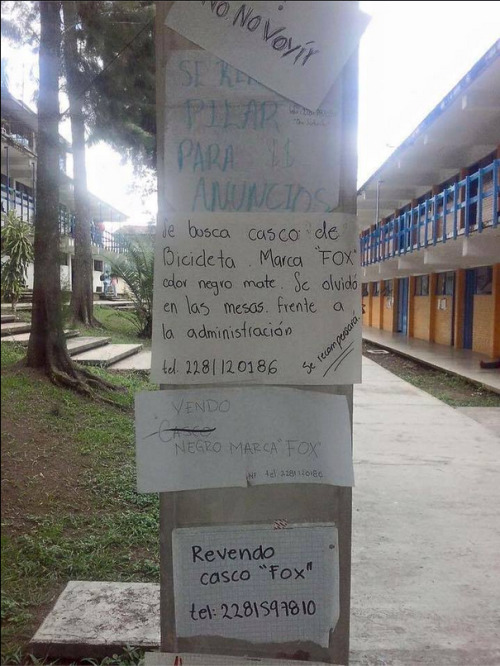 No No Voyir
SE RE
PILAR
PARA 11
ANUNCIOS
Se busca casco de
Bicicleta. Marca "FOX"
color negro mate. Se olvidó
en las mesas. frente a
la administración
tel. 2281120186
Se recompensará.
VENDO
CASCO
NEGRO MARCA "FOX"
tel. 2281120186
Revendo
casco "Fox"
tel: 2281597810